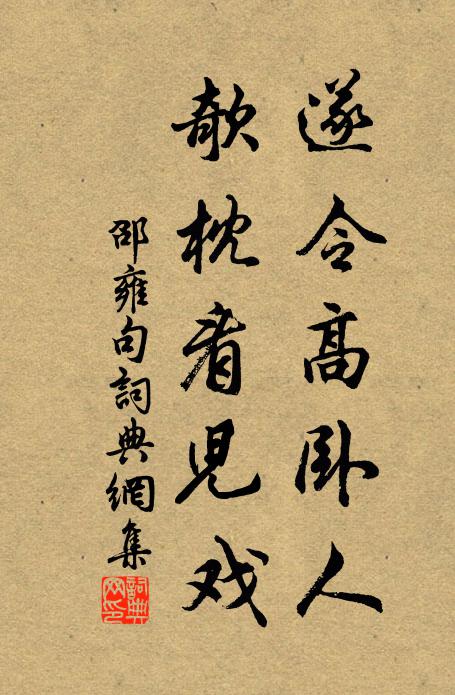 遂令高卧人
欹枕看兒戏
邵雍句詞典網集
詞典网印